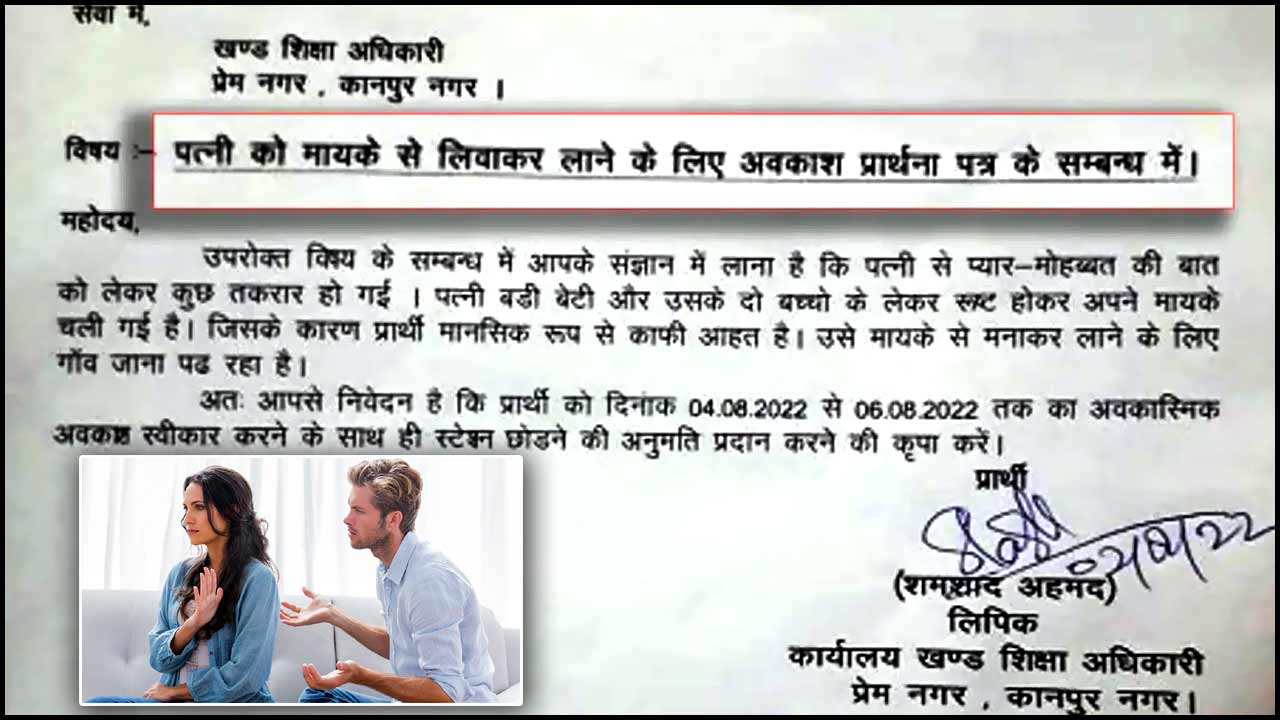 सेवा में,
खण्ड शिक्षा अधिकारी
प्रेम नगर , कानपुर नगर ।
विषय :– पत्नी को मायके से लिवाकर लाने के लिए अवकाश प्रार्थना पत्र के सम्बन्ध में।
महोदय,
उपरोक्त विषय के सम्बन्ध में आपके संज्ञान में लाना है कि पत्नी से प्यार–मोहब्बत की बात
को लेकर कुछ तकरार हो गई । पत्नी बडी बेटी और उसके दो बच्चो के लेकर रूष्ट होकर अपने मायके
चली गई है। जिसके कारण प्रार्थी मानसिक रूप से काफी आहत है। उसे मायके से मनाकर लाने के लिए
गॉव जाना पढ रहा है।
अतः आपसे निवेदन है कि प्रार्थी को दिनांक 04.08.2022 से 06.08.2022 तक का अवकास्मिक
अवकाश स्वीकार करने के साथ ही स्टेशन छोडने की अनुमति प्रदान करने की कृपा करें।
प्रार्थी
(शमशाद अहमद)
लिपिक
कार्यालय खण्ड शिक्षा अधिकारी
प्रेम नगर , कानपुर नगर।